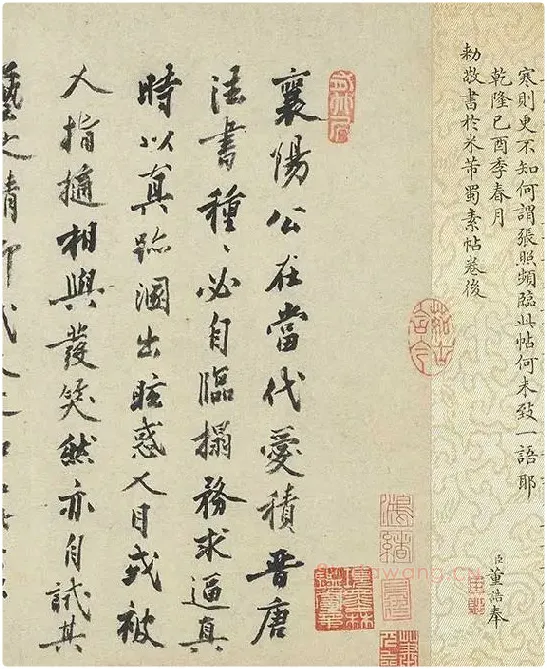 寒則更不知何謂張照頻臨此帖何未致一語耶
乾隆己酉季春月 臣董誥奉
勅敬書於米芾蜀素帖卷後
襄陽公在當代愛積晉唐
法書種〻必自臨搨務求逼真
時以真跡溷出眩惑人目或被
人指擿相與發笑然亦自試其
藝之精